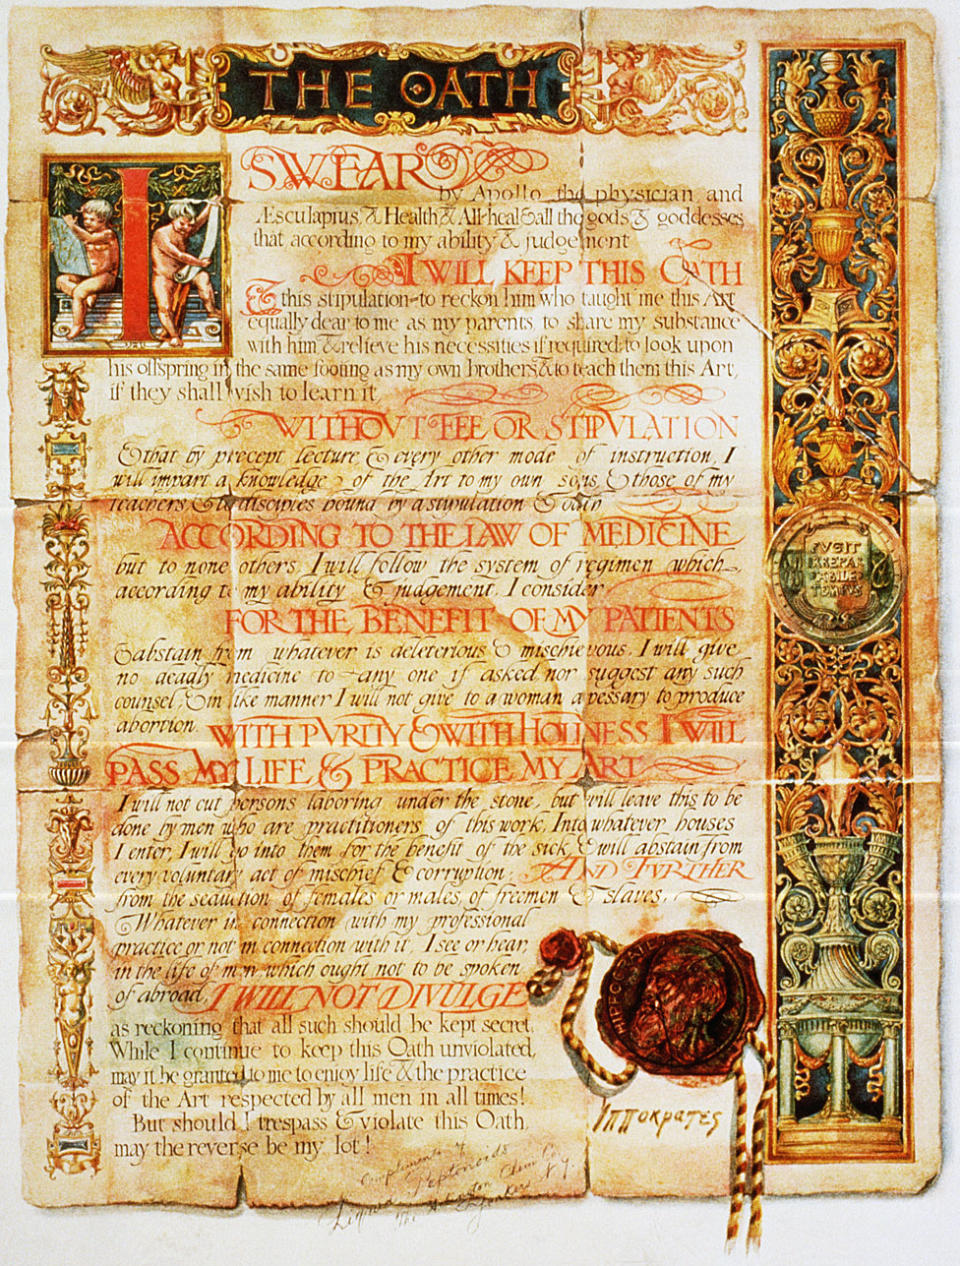 THE OATH
I
SWEAR
by Apollo, the physician, and
Æsculapius, & Health & All-heal & all the gods & goddesses
that according to my ability & judgement
I WILL KEEP THIS OATH
& this stipulation—to reckon him who taught me this Art
equally dear to me as my parents, to share my substance
with him, & relieve his necessities if required; to look upon
his offspring in the same footing as my own brothers, & to teach them this Art,
if they shall wish to learn it,
WITHOVT FEE OR STIPVLATION
& that by precept, lecture, & every other mode of instruction, I
will impart a knowledge of the Art to my own sons, & those of my
teachers, & to disciples bound by a stipulation & oath
ACCORDING TO THE LAW OF MEDICINE
but to none others. I will follow the system of regimen which,
according to my ability & judgement, I consider
FOR THE BENEFIT OF MY PATIENTS
& abstain from whatever is deleterious & mischievous. I will give
no deadly medicine to any one if asked nor suggest any such
counsel, & in like manner I will not give to a woman a pessary to produce
abortion. WITH PVRTIY & WITH HOLINESS I WILL
PASS MY LIFE & PRACTICE MY ART
I will not cut persons laboring under the stone, but will leave this to be
done by men who are practitioners of this work. Into whatever houses
I enter, I will go into them for the benefit of the sick, & will abstain from
every voluntary act of mischief & corruption; AND FVRTHER
from the seduction of females or males, of freemen & slaves.
Whatever in connection with my professional
practice or not in connection with it, I see or hear,
in the life of men which ought not to be spoken
of abroad, I WILL NOT DIVULGE
as reckoning that all such should be kept secret.
While I continue to keep this Oath unviolated,
may it be granted to me to enjoy life & the practice
of the Art respected by all men in all times!
But should I trespass & violate this Oath,
may the reverse be my lot!
Compliments of
Liquid Peptonoids
The Arlington Chem Co
Yonkers N.Y.
FVGIT
TEMPVS
HIPPOCRA
Ιπποκρατες